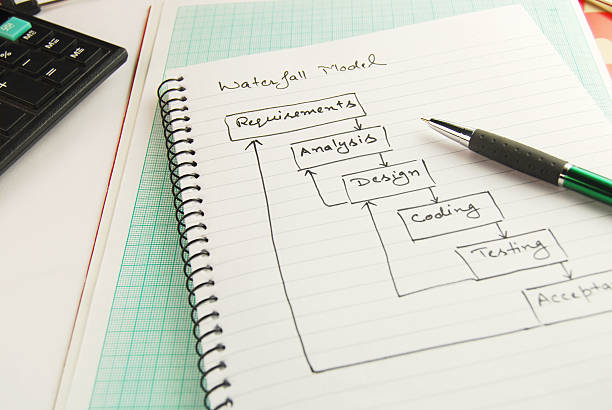 Waterfall Model
Requirements
Analysis
Design
Coding
Testing
Accepta